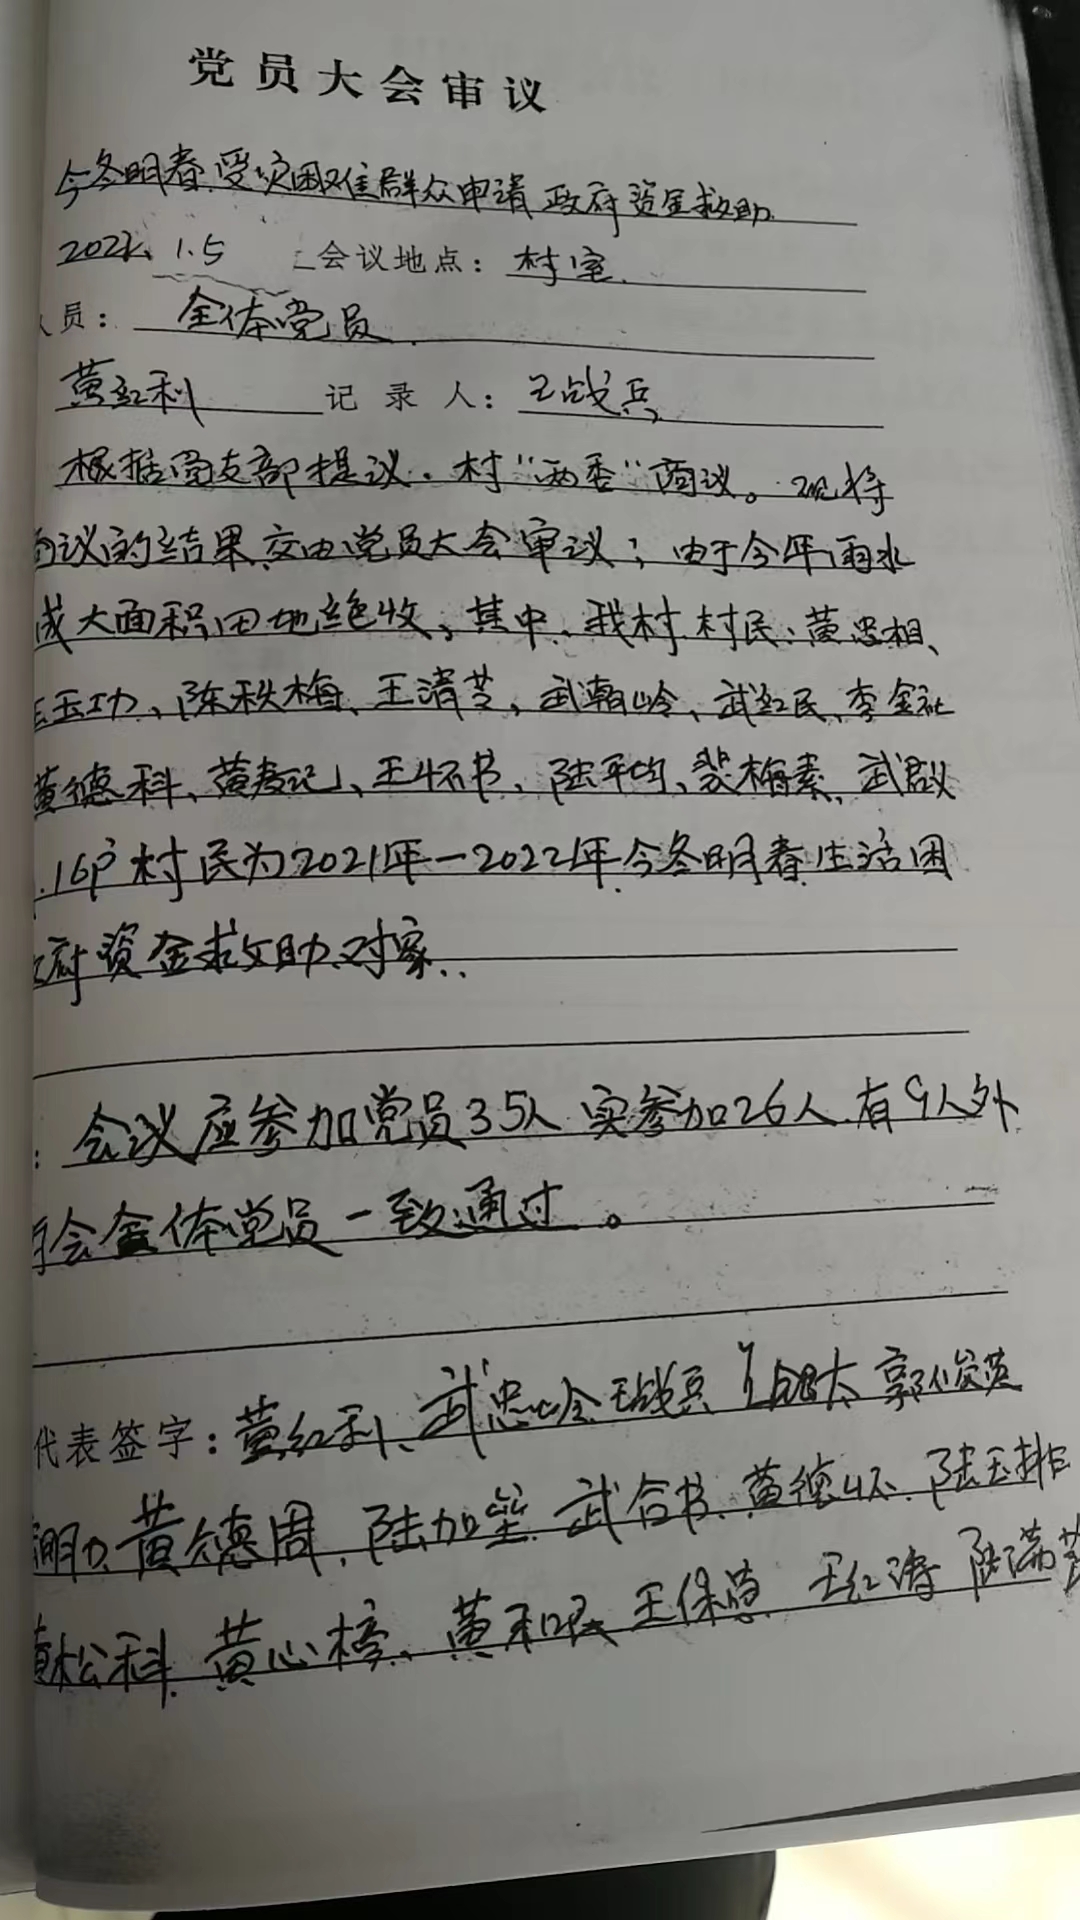 党员大会审议
今冬明春受灾困难群众申请政府资金救助
2022. 1.5 会议地点：村室
员：全体党员
黄红利 记录人：王战兵
根据党支部提议。村“两委”商议。现将
商议的结果交由党员大会审议；由于今年雨水
成大面积田地绝收，其中，我村村民：黄忠相、
玉功、陈秩梅、王清芝，武朝岭、武红民、李金社
黄德科、黄寿记、王怀书、陆平均、裴梅素、武启义
16户村民为2021年—2022年今冬明春生活困
府资金救助对象..
：会议应参加党员35人 实参加26人 有9人外
与会全体党员一致通过。
代表签字：黄红利、武忠岭 王战兵 郭俊英
黄德周，陆加垒 武合书、黄德怀、陆玉排
黄松科 黄心榜、黄和民 王保忠 王红涛 陆满